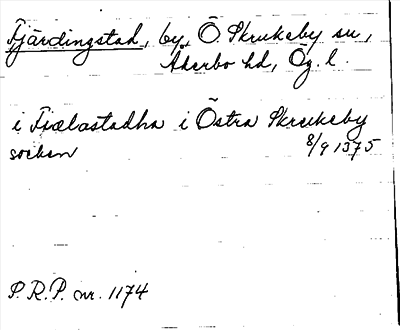 Fjärdingstad, by, Ö. Skrukeby sn,
Åkerbo hd, Ög. l.
i Fiælastadha i Östra Skrukeby
socken 8/9 1375
P. R. P. nr. 1174